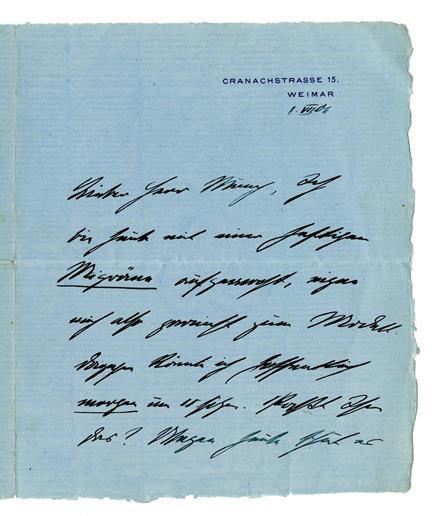 CRANACHSTRASSE 15.
WEIMAR
Lieber Herr Munch, Ich
bin heute mit einer heftigen
Migräne aufgewacht, eigne
mich also zum Modell.
Dagegen könnte ich hoffentlich
morgen um 11 sitzen. Passt Ihnen
das? Wegen heute